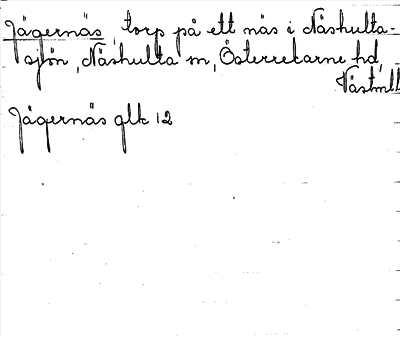 Jägernäs, torp på ett näs i Näshulta-
sjön, Näshulta sn, Österrekarne hd,
Västmll
Jägernäs glk 12